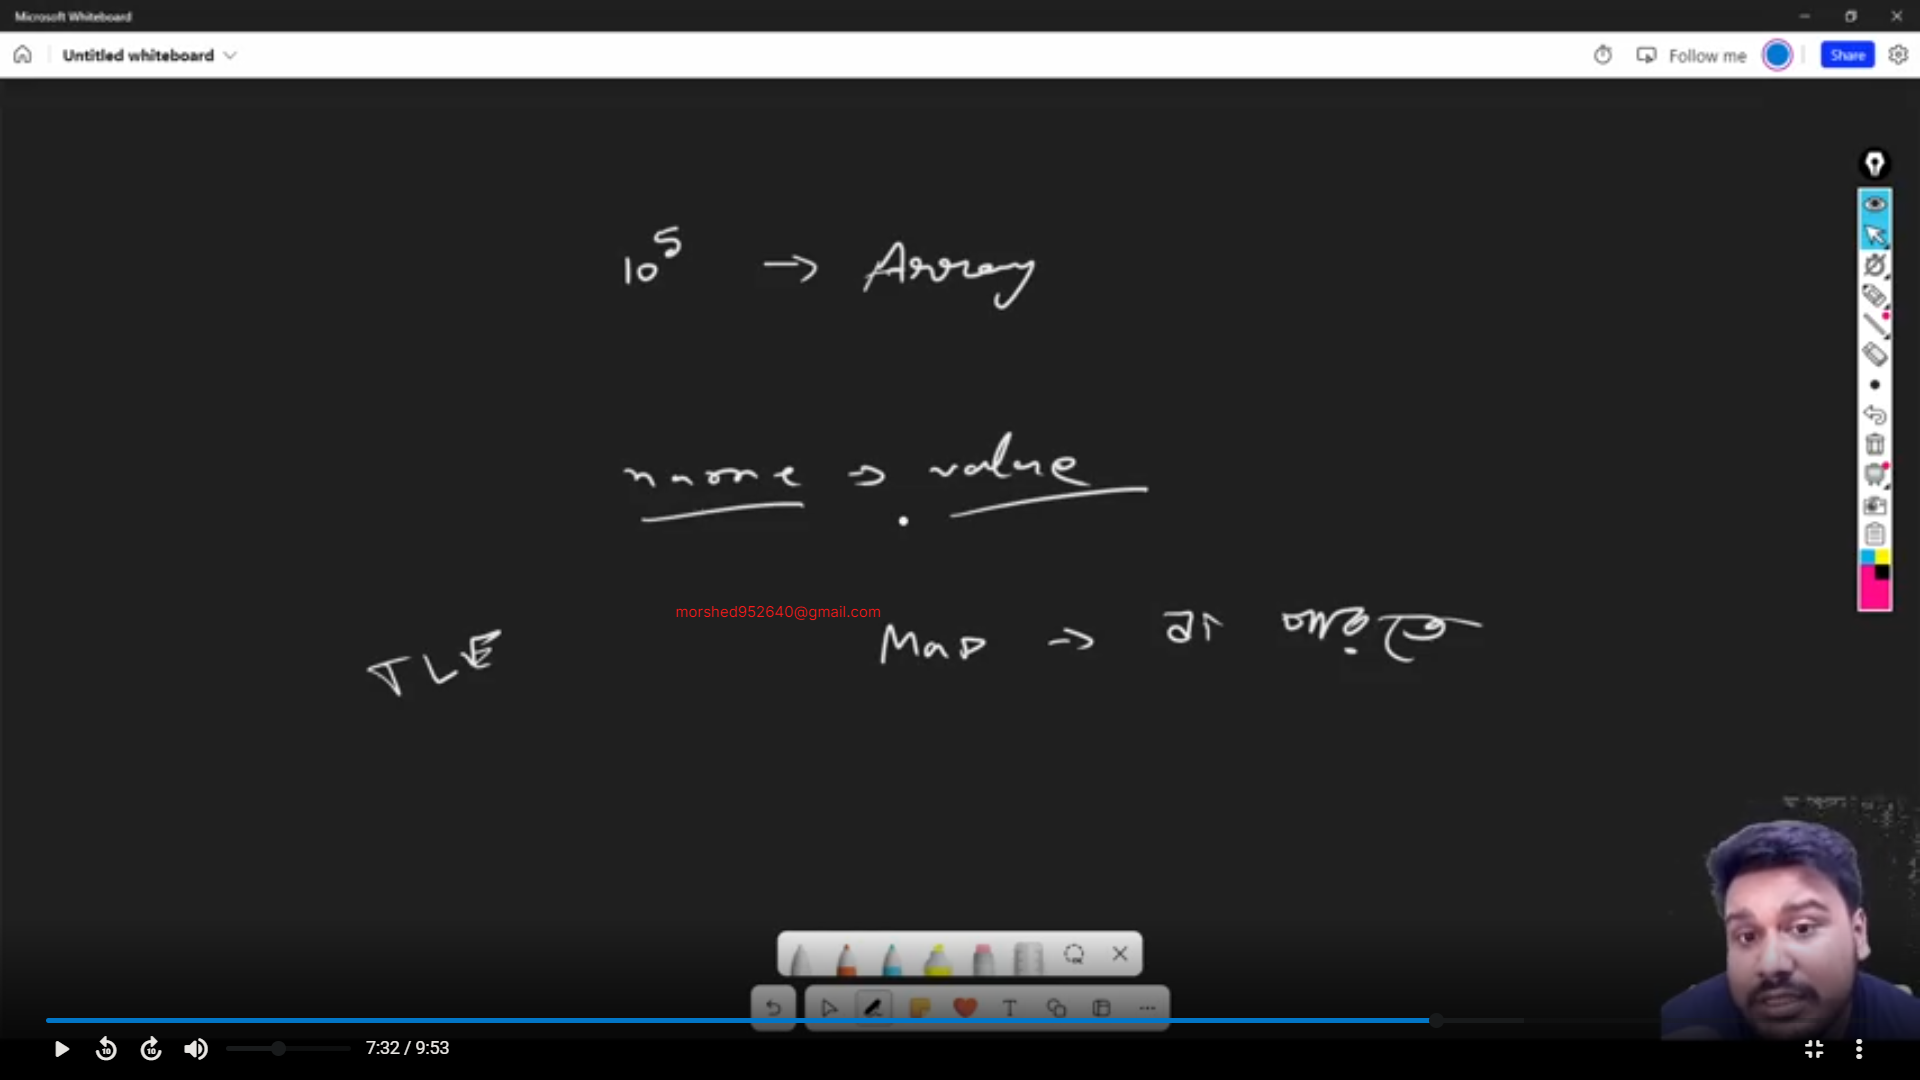 Microsoft Whiteboard
Untitled whiteboard
Follow me
Share
10^5 → Array
name → value
morshed952640@gmail.com
Map → বা
TLE
10 10 7:32 / 9:53